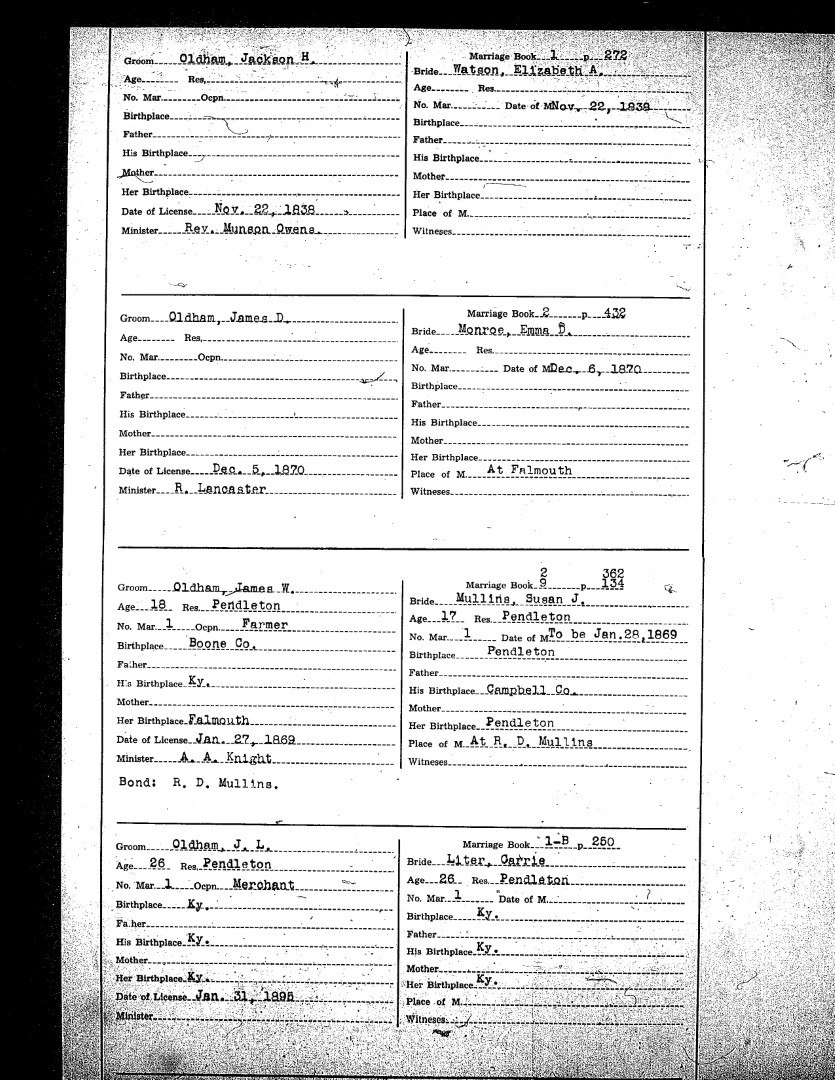 Groom Oldham, Jackson H.
Age Res.
No. Mar. Ocpn.
Birthplace
Father
His Birthplace
Mother
Her Birthplace
Date of License Nov. 22, 1838
Minister Rev. Munson Owens.
Marriage Book 1 p. 272
Bride Watson, Elizabeth A.
Age Res.
No. Mar. Date of M Nov. 22, 1838
Birthplace
Father
His Birthplace
Mother
Her Birthplace
Place of M.
Witneses
Groom Oldham, James D.
Age Res.
No. Mar. Ocpn.
Birthplace
Father
His Birthplace
Mother
Her Birthplace
Date of License Dec. 5, 1870
Minister R. Lancaster
Marriage Book 2 p. 432
Bride Monroe, Emma B.
Age Res.
No. Mar. Date of M Dec. 6, 1870
Birthplace
Father
His Birthplace
Mother
Her Birthplace
Place of M. At Falmouth
Witneses
Groom Oldham, James W.
Age 18 Res. Pendleton
No. Mar. 1 Ocpn. Farmer
Birthplace Boone Co.
Father
His Birthplace Ky.
Mother
Her Birthplace Falmouth
Date of License Jan. 27, 1869
Minister A. A. Knight
Bond: R. D. Mullins.
2 362
Marriage Book 9 p. 134
Bride Mullins, Susan J.
Age 17 Res. Pendleton
No. Mar. 1 Date of M To be Jan.28,1869
Birthplace Pendleton
Father
His Birthplace Campbell Co.
Mother
Her Birthplace Pendleton
Place of M. At R. D. Mullins
Witneses
Groom Oldham, J. L.
Age 26 Res. Pendleton
No. Mar. 1 Ocpn. Merchant
Birthplace Ky.
Father
His Birthplace Ky.
Mother
Her Birthplace Ky.
Date of License Jan. 31, 1895
Minister
Marriage Book 1-B p. 250
Bride Liter, Carrie
Age 26 Res. Pendleton
No. Mar. 1 Date of M.
Birthplace Ky.
Father
His Birthplace Ky.
Mother
Her Birthplace Ky.
Place of M.
Witneses